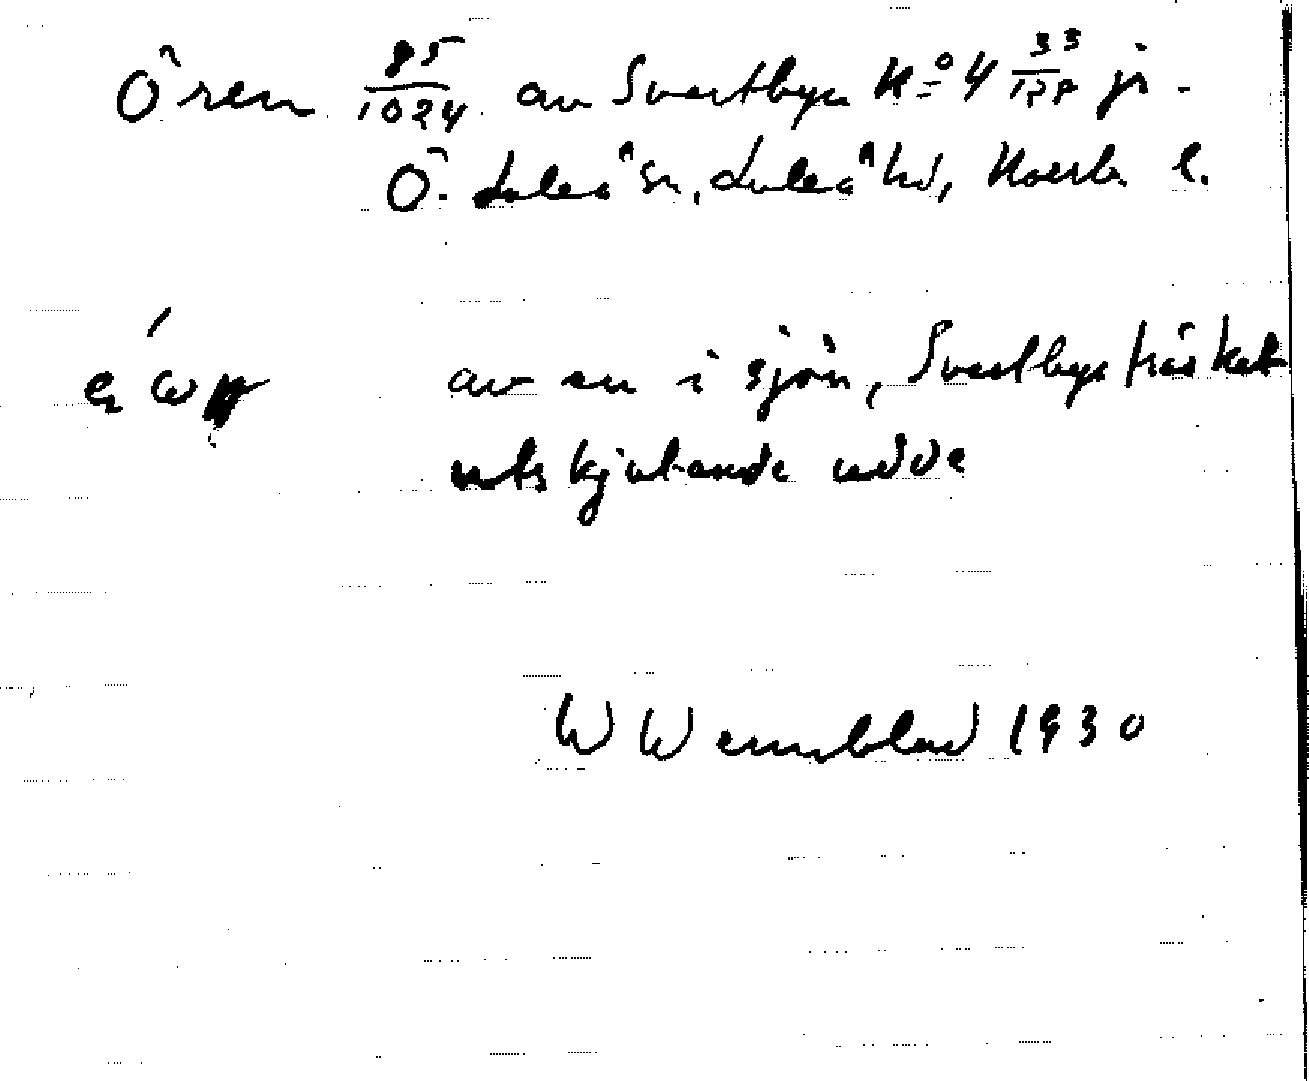 Ören 85/1024 av Svartbyn No 4 33/128 i
Ö. Luleå sn, Luleå hd, Norrb. l.
av en i sjön, Svartbyträsket
utskjutande udde
W Wennblad 1930